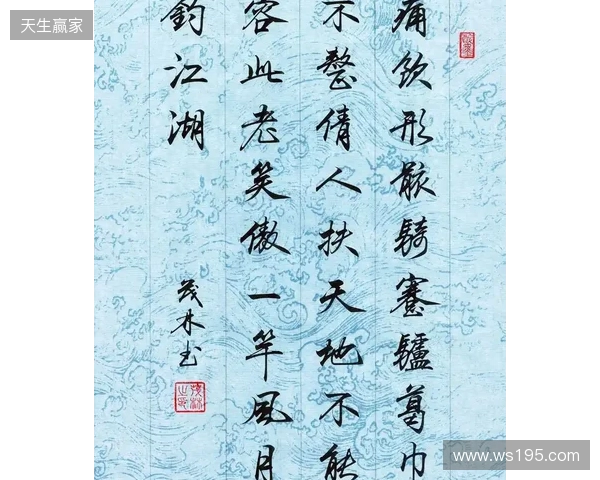 天生赢家
痛飲形骸騎蹇驢葛巾
不整倩人扶天地不能
容此老笑傲一竿風月
釣江湖
茂林书
www.ws195.com